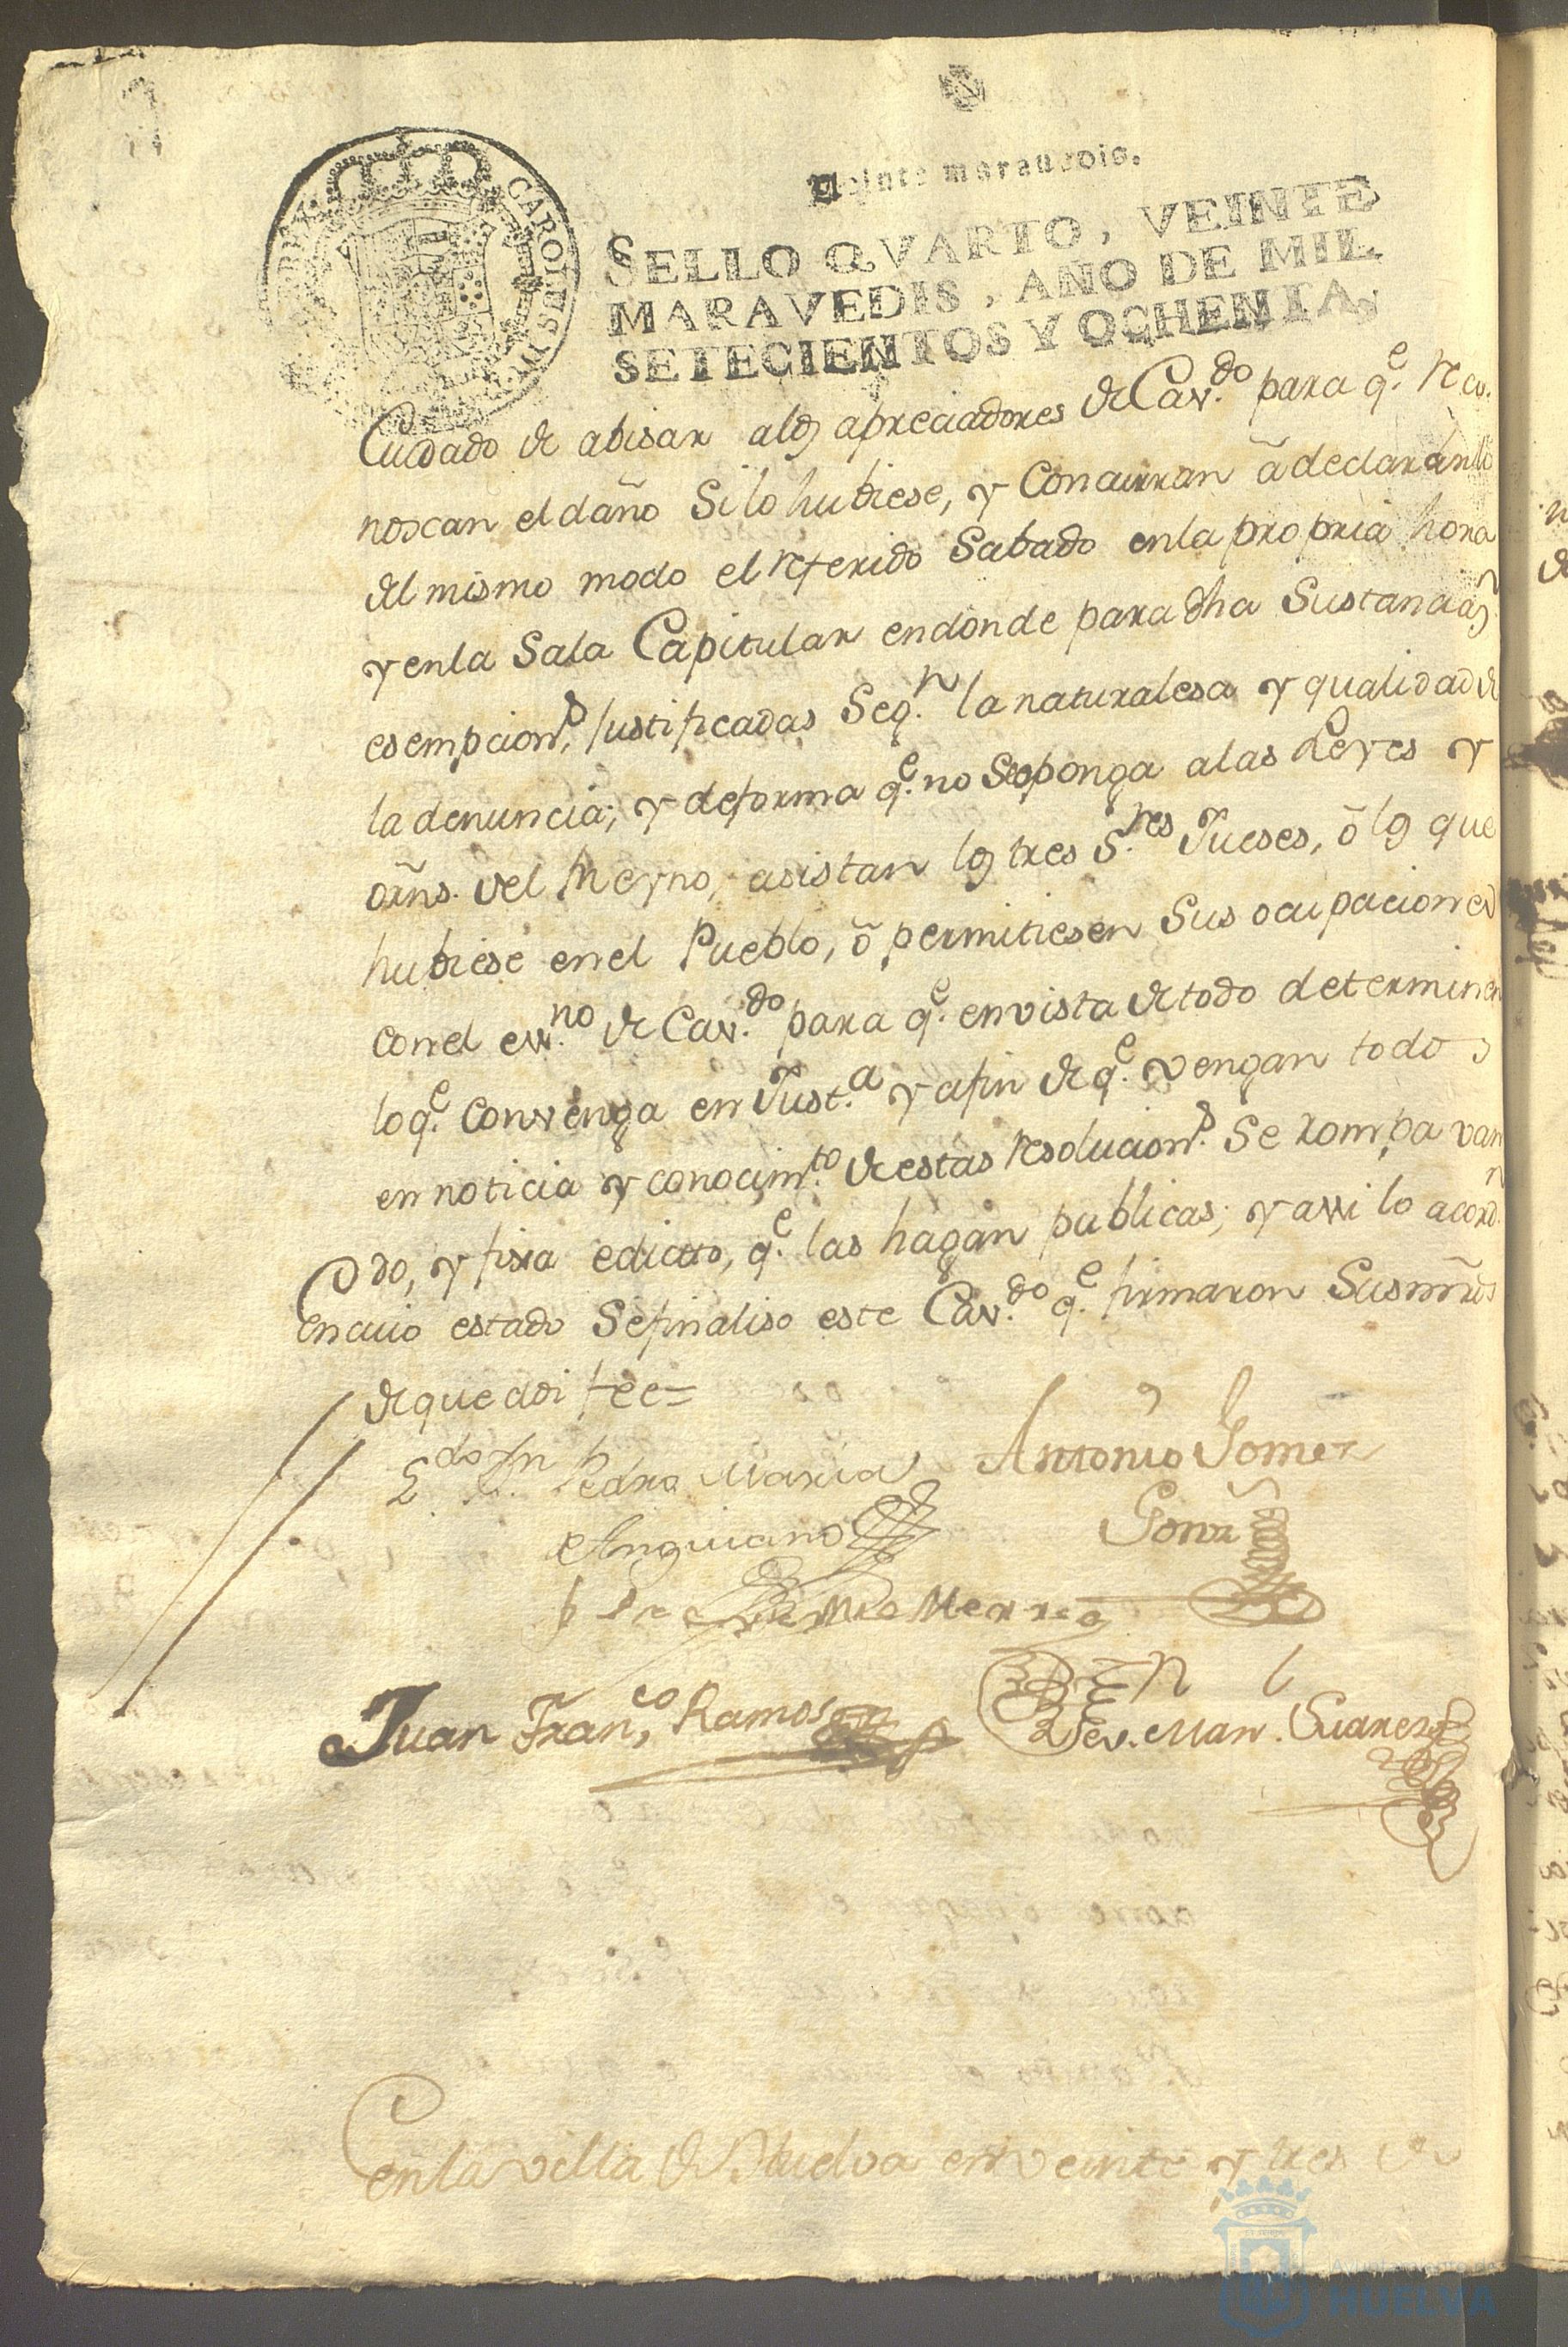 Veinte maravedis.
SELLO QVARTO, VEINTE
MARAVEDIS, AÑO DE MIL
SETECIENTOS Y OCHENTA,
CAROLUS III
Cuidado de abisar alos apreciadores de Cav.do para q.e reco-
noscan el daño Silo hubiese, y Concurran â declararlo
del mismo modo el referido Sabado enla propria hora
y enla Sala Capitular endonde para dha Sustanciaz.n
esempcion.s Justificadas Seg.n la naturalesa y qualidad de
la denuncia; y deforma q.e no Seoponga alas Leyes y
orñs. del Reyno, asistan los tres S.res Jueses, ô los que
hubiese enel Pueblo, ô permitiesen Sus ocupaciones
conel ess.no de Cav.do para q.e envista de todo determinen
loq.e convenga en Just.a y afin de q.e vengan todos
en noticia y conocim.to de estas resolucion.s Se rompa van-
do, y fixa edicto, q.e las hagan publicas; y assi lo acord.n
Encuio estado Sefinaliso este Cav.do q.e firmaron Susmrds
deque doi fee=
L.do Dn Pedro Maria
Anguiano
Antonio Gomez
Gonz
Juan Fran.co Ramos
Sev. Man. Suarez
Enla villa de Huelva en veinte y tres de
Ayuntamiento de
HUELVA